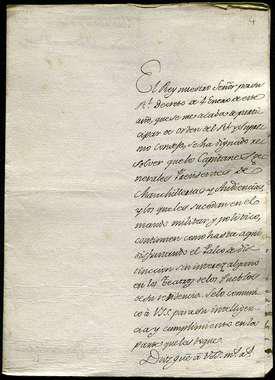 4
El Rey nuestro Señor por su
Rl. Decreto de 4 Enero de este
año, que se me acaba de parti-
cipar de orden del Rl. y Supre-
mo Consejo, se ha dignado re-
solver que los Capitanes Ge-
nerales Presidentes de
Chancillerias y Audiencias,
y los que les sucedan en el
mando militar y politico,
continuen como hasta aqui
disfrutando el Palco de dis-
tincion sin interes alguno
en los Teatros de los Pueblos
de su residencia. Y lo comuni-
co à V.SS. para su inteligen-
cia y cumplimiento en la
parte que les toque.
Dios gue. à V.SS. ms. as.